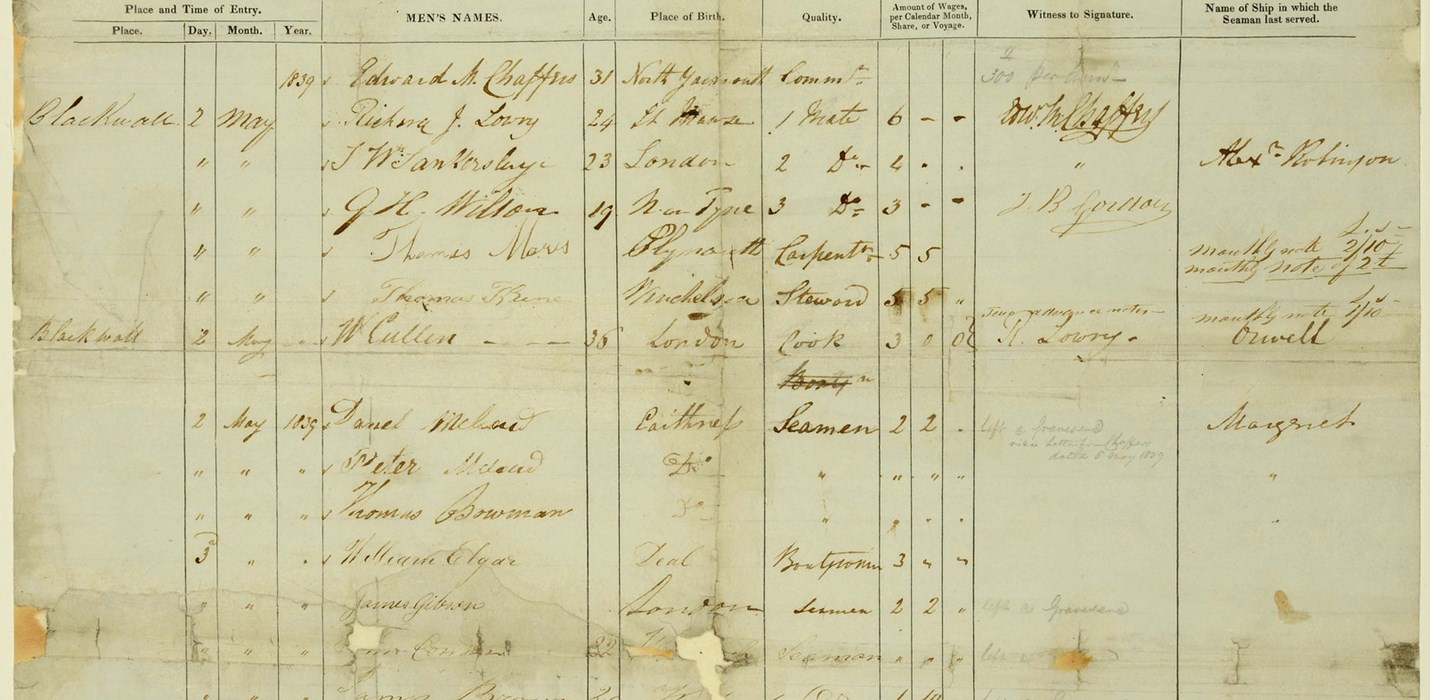 Place and Time of Entry. MEN'S NAMES. Age. Place of Birth. Quality. Amount of Wages, per Calendar Month, Share, or Voyage. Witness to Signature. Name of Ship in which the Seaman last served.
Place. Day. Month. Year.
1839 Edward M. Chaffers 31 North Yarmouth Comm
Blackwall 2 May Richard J. Lowry 24 St 1 Mate 6 - - Edw. M Chaffers
" " 23 London 2 Do 4 . . " Alexr Robinson
" " G H. Wilson 19 N on Tyne 3 Do 3 - - J. B Gordon
" " Thomas Mars Plymouth Carpentr 5 5 monthly note 2/10
monthly note of 2
" " Thomas Winchelsea Steward 5 5 " monthly note 1/10
Blackwall 2 May " W Cullen - - - 36 London Cook 3 0 0 R. Lowry. Orwell
2 May 1839 Daniel Caithness Seamen 2 2 . left at Gravesend Margret
dated 5 May 1839
" " " Peter Do " " " " "
" " " Thomas Bowman Do " " . .
3 " . William Elgar Deal 3 " "
" " " James Gibson London Seamen 2 2 " left at Gravesend
" " " 22 Seaman " " " left
" " James